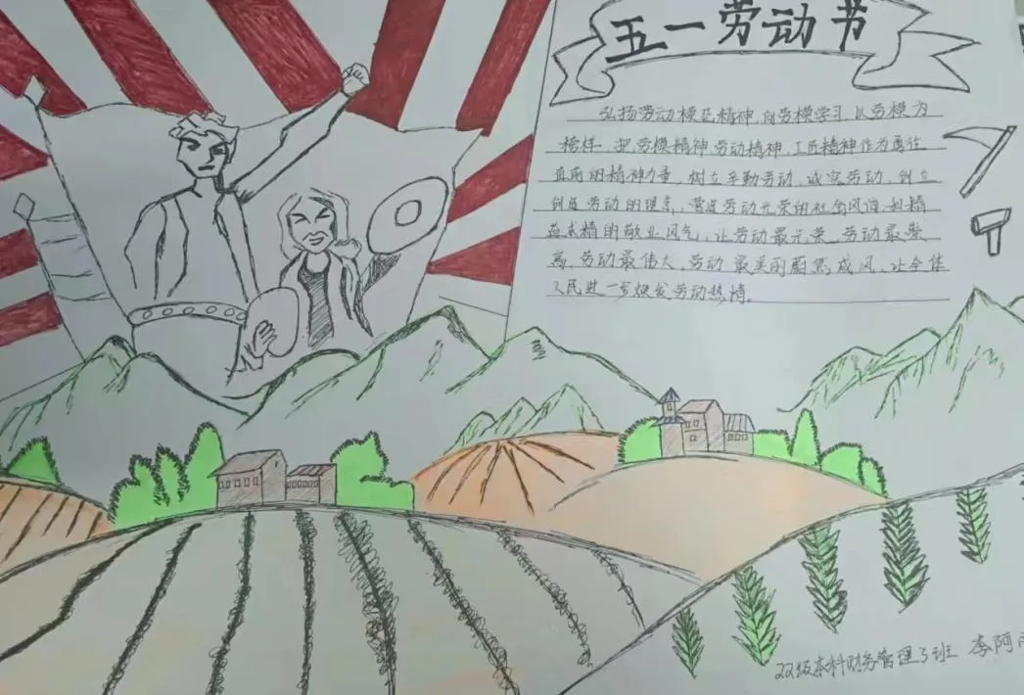 五一劳动节
弘扬劳动模范精神,向劳模学习,以劳模为
榜样,把劳模精神劳动精神,工匠精神作为勇往
直前的精神力量,树立辛勤劳动,诚实劳动,创立
创造劳动的理念,营造劳动光荣的社会风尚和精
益求精的敬业风气,让劳动最光荣、劳动最崇
高、劳动最伟大,劳动最美丽蔚然成风,让全体
人民进一步焕发劳动热情。
22级本科财务管理3班 李阿